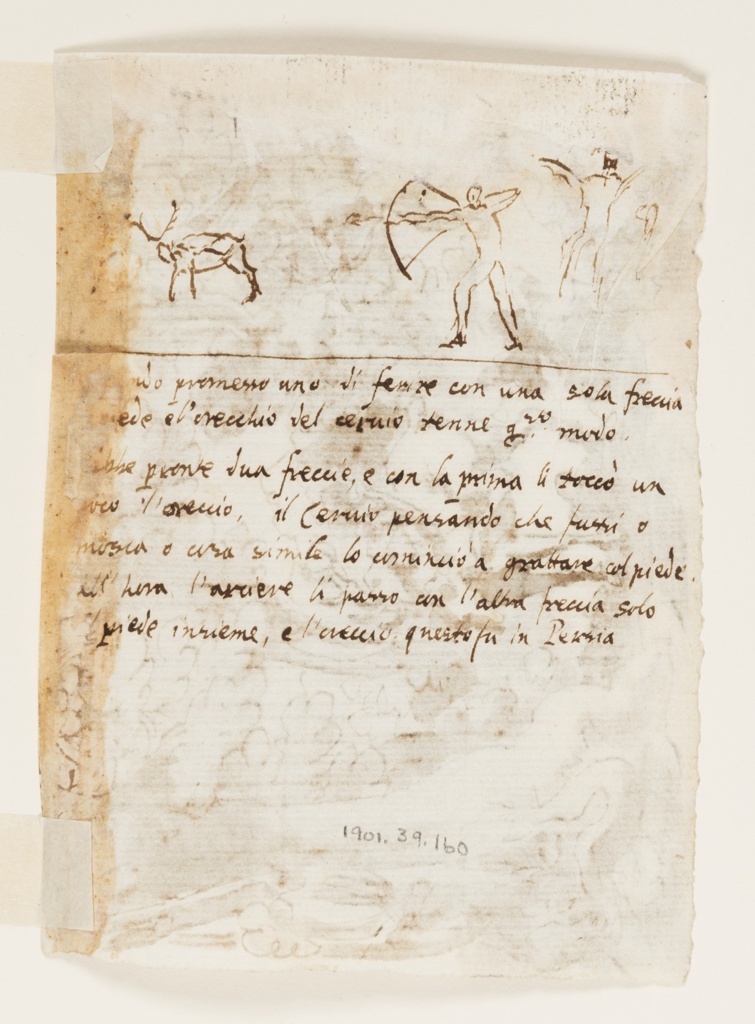 do promesso uno di ferire con una sola freccia
piede e l'orecchio del ceruio tenne q.sto modo.
hebbe pronte dua freccie, e con la prima li toccò un
poco l'oreccio, il Ceruio pensando che fussi o
mosca o cosa simile lo cominciò a grattare col piede.
all'hora l'arciere li passo con l'altra freccia solo
il piede insieme, e l'oreccio. questo fu in Persia
1901.39.160